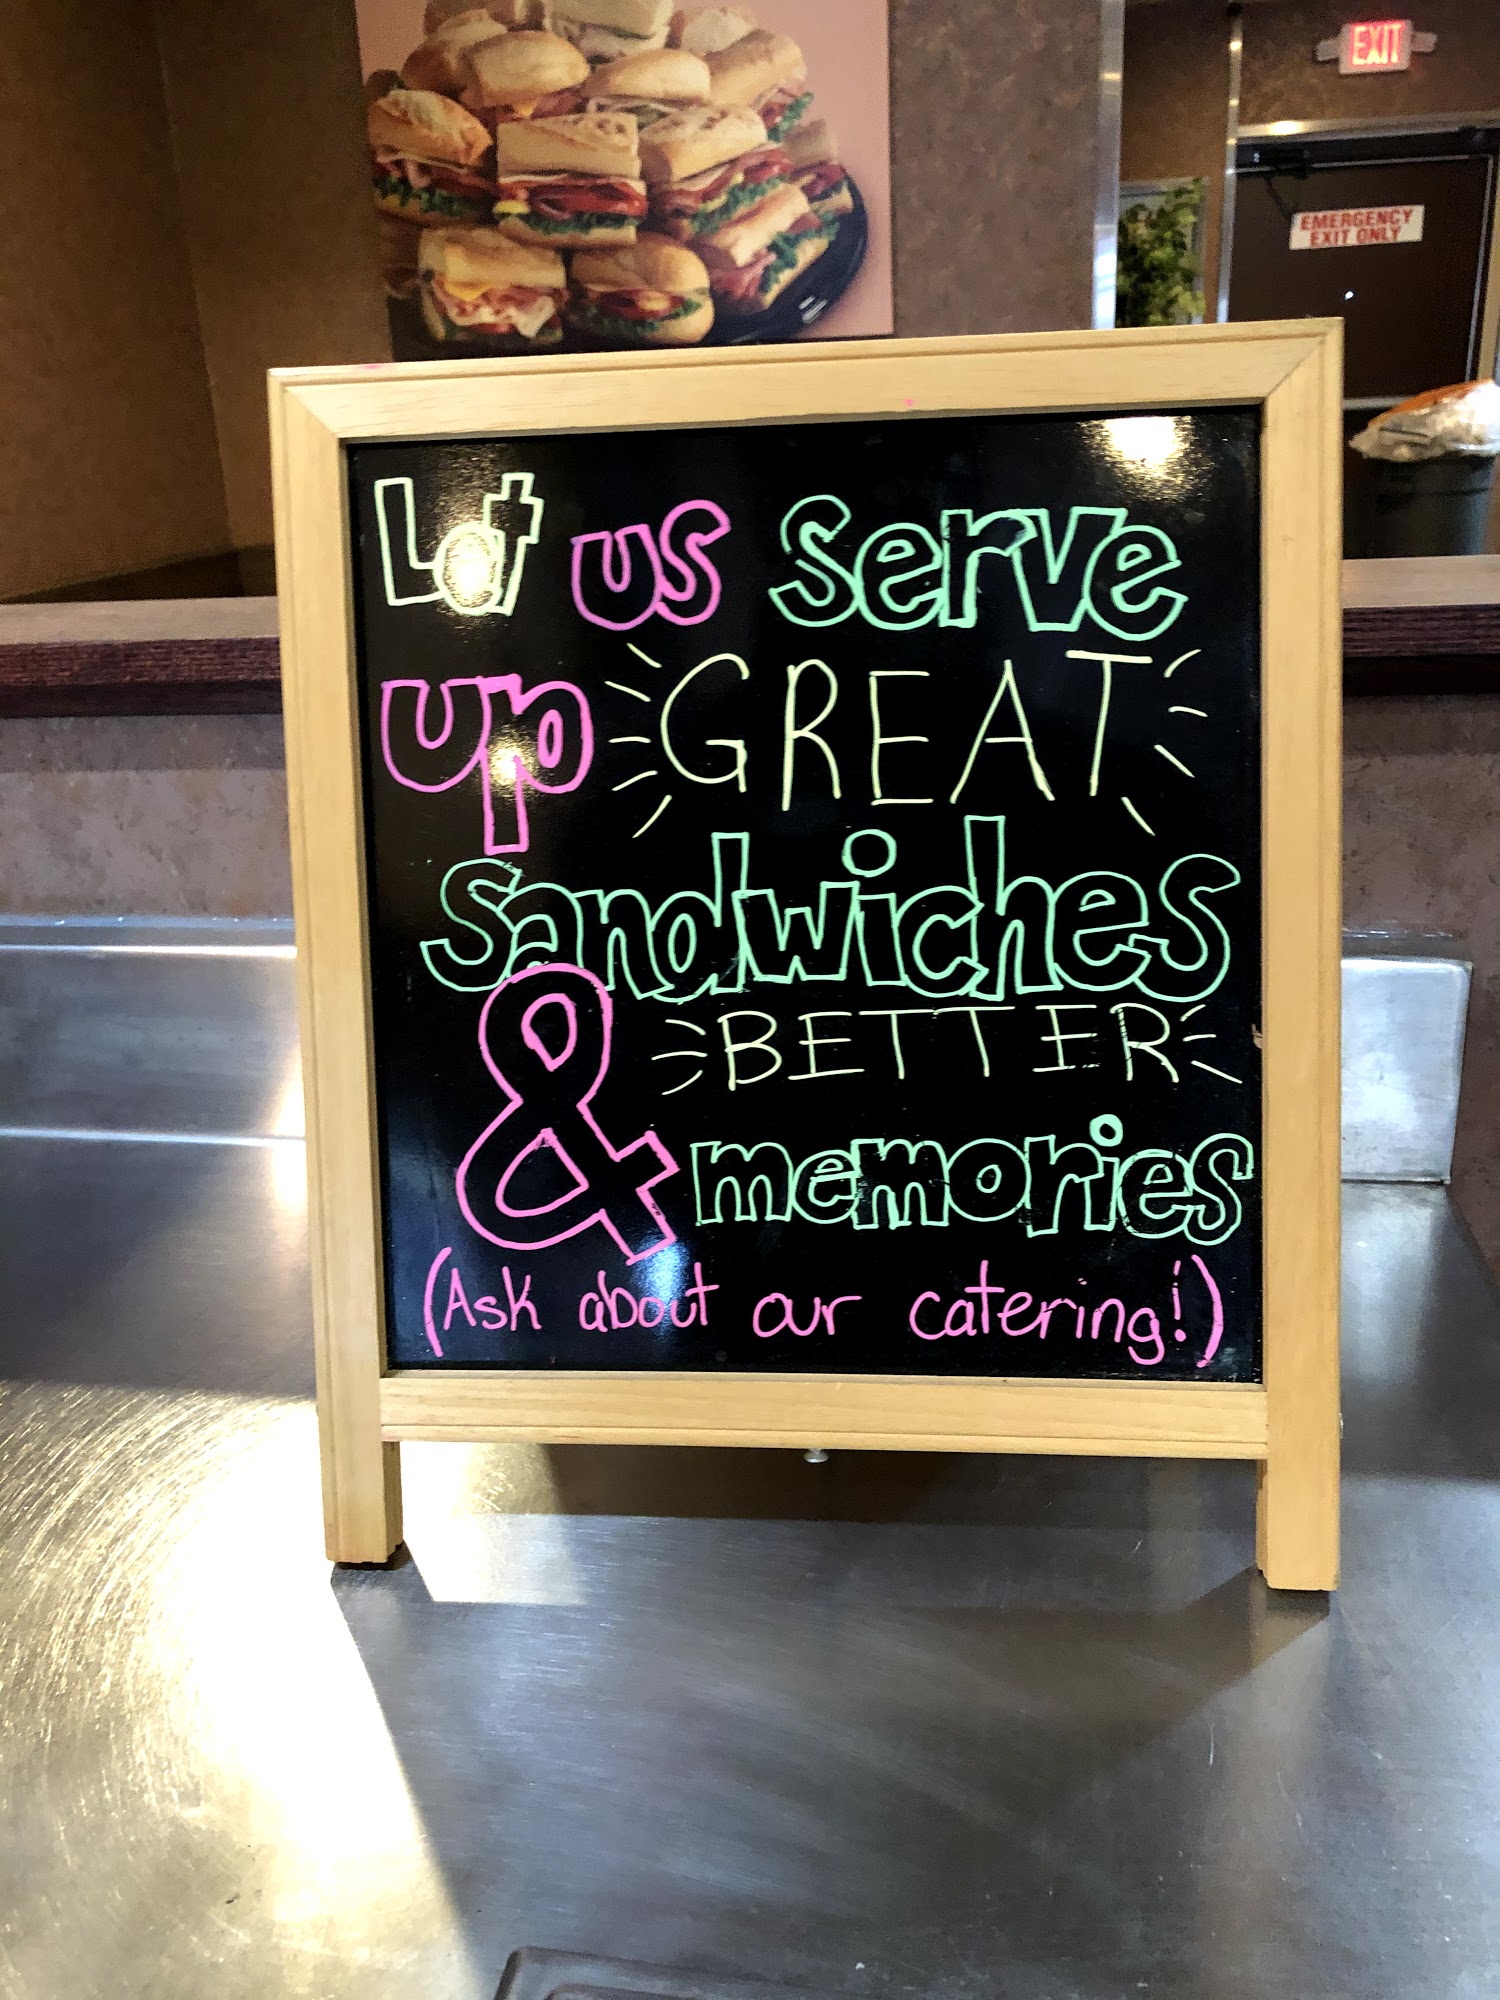 EXIT
EMERGENCY
EXIT ONLY
Let us serve
up GREAT
sandwiches
& BETTER
memories
(Ask about our catering!)